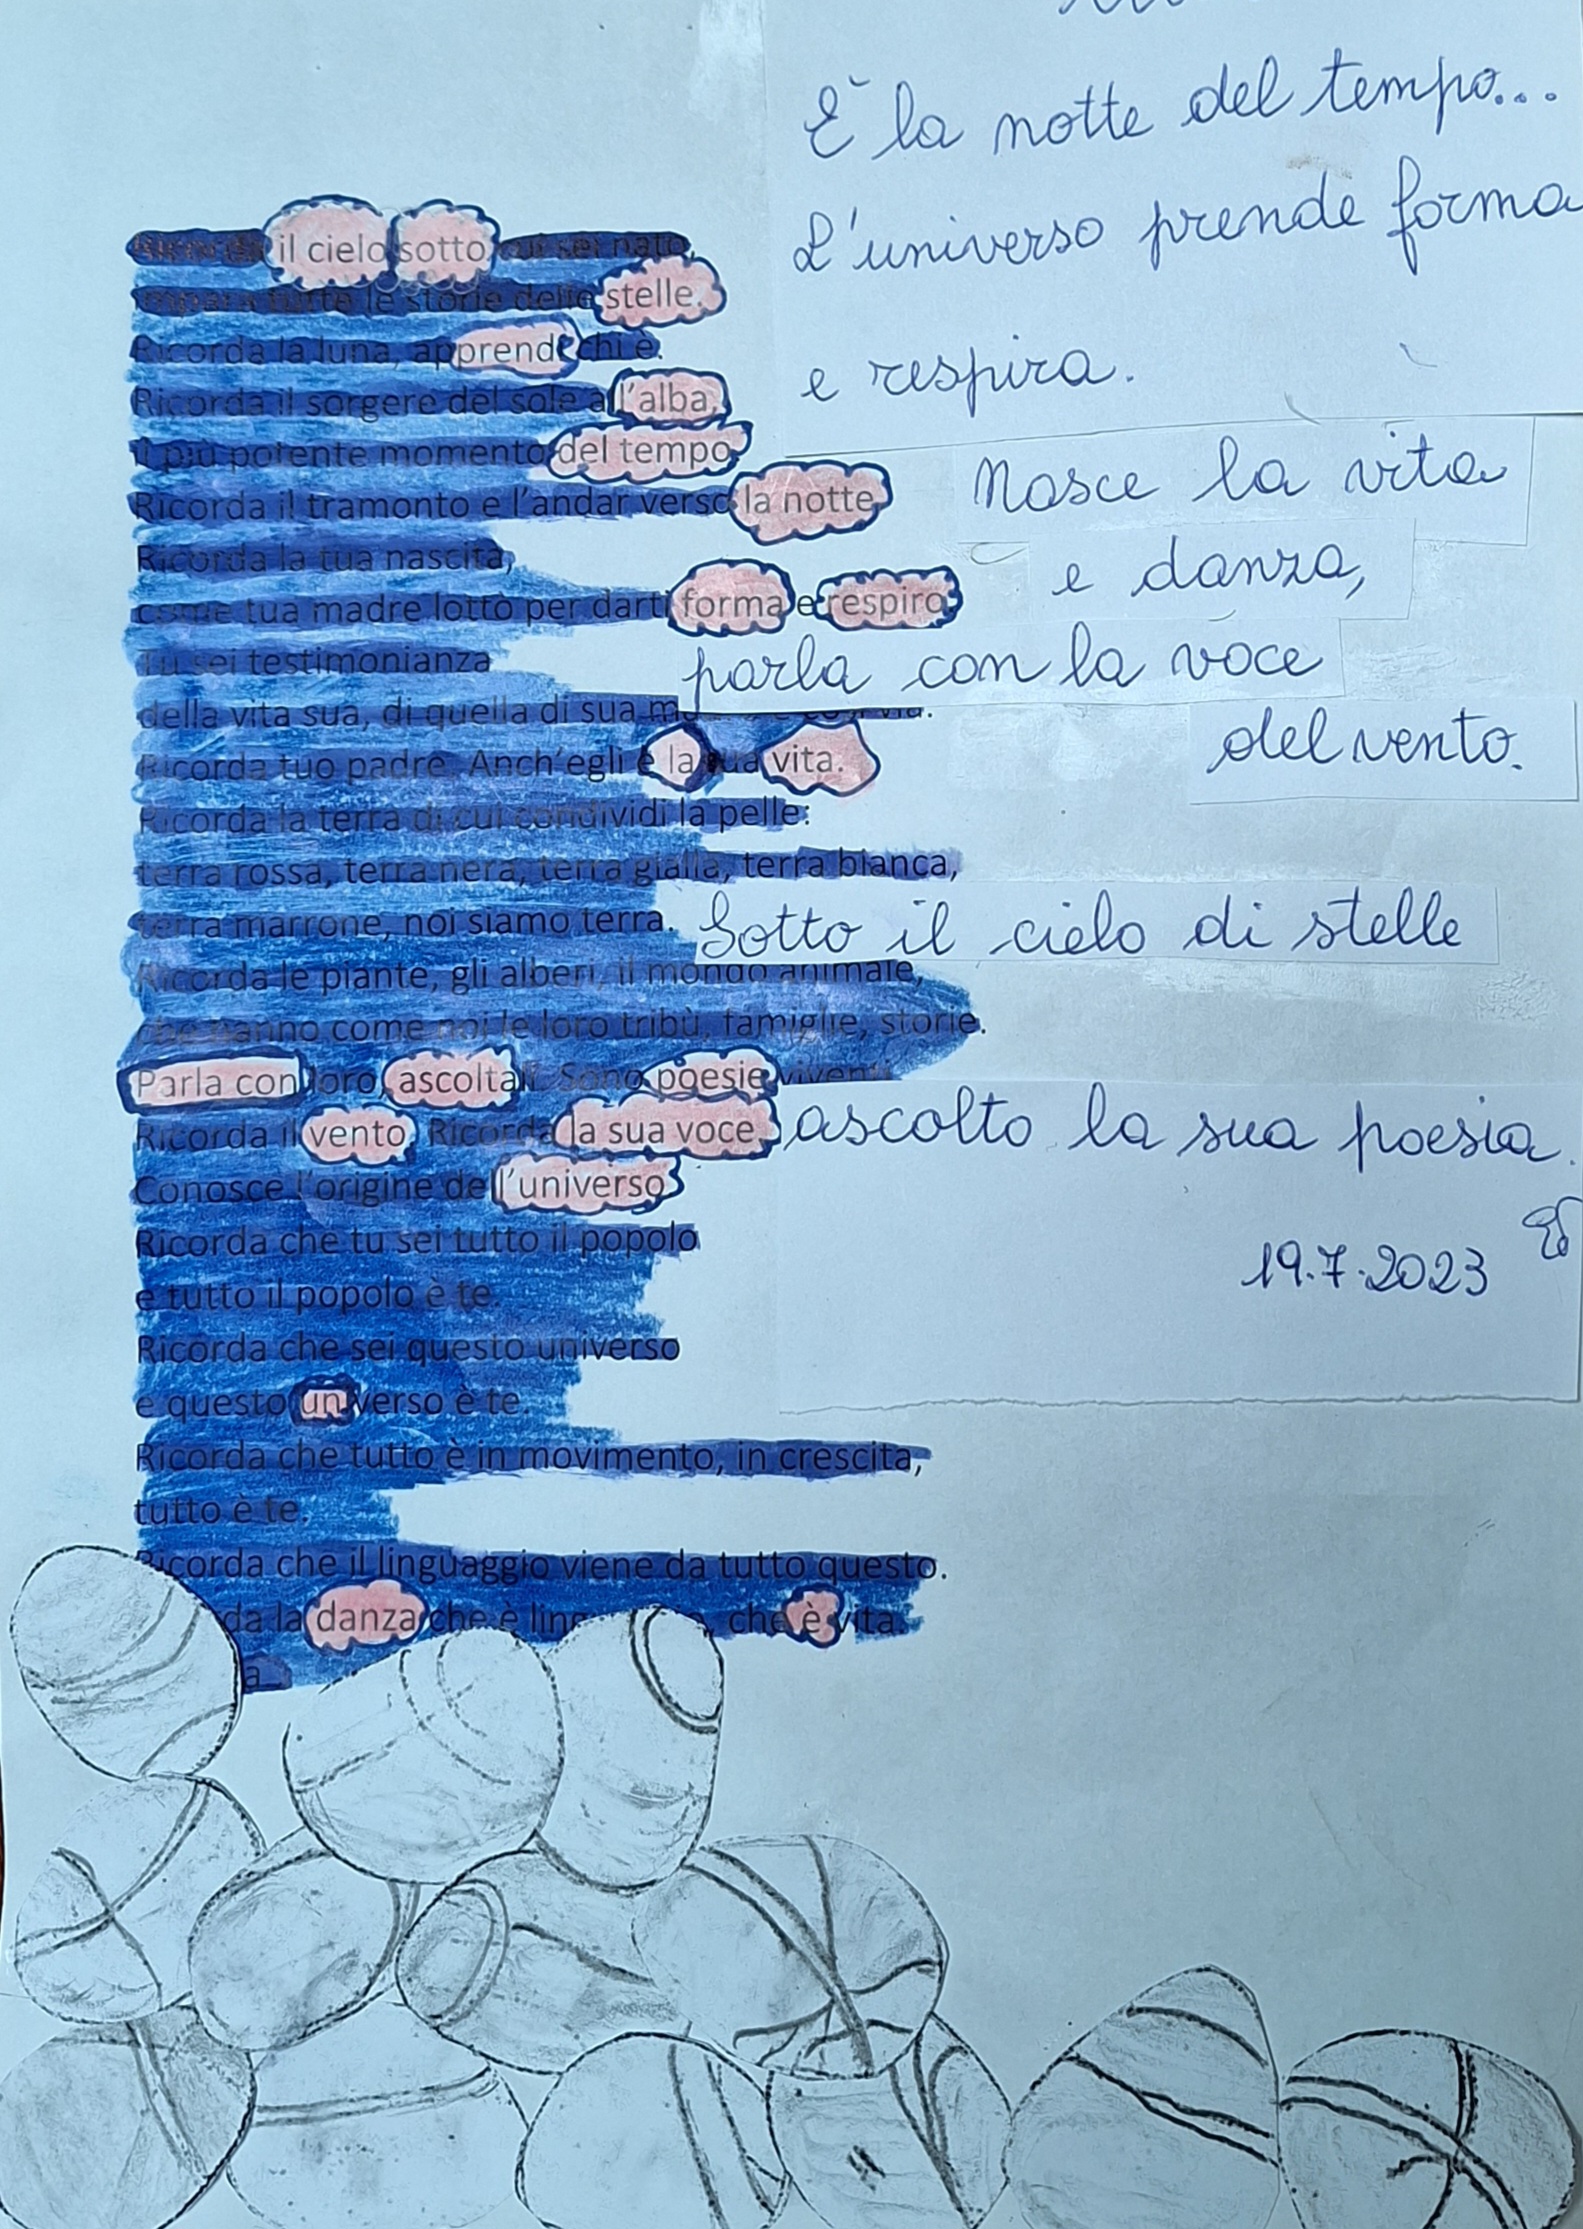 È la notte del tempo...
L'universo prende forma
e respira.
Nasce la vita
e danza,
parla con la voce
del vento.
Sotto il cielo di stelle
ascolto la sua poesia.
19.7.2023
Ricorda il cielo sotto cui sei nato,
impara tutte le storie delle stelle.
Ricorda la luna, apprendi chi è.
Ricorda il sorgere del sole all'alba,
il più potente momento del tempo.
Ricorda il tramonto e l'andar verso la notte.
Ricorda la tua nascita,
come tua madre lottò per darti forma e respiro.
Tu sei testimonianza
della vita sua, di quella di sua
Ricorda tuo padre. Anch'egli è la tua vita.
Ricorda la terra di cui condividi la pelle:
terra rossa, terra nera, terra gialla, terra bianca,
terra marrone, noi siamo terra.
Ricorda le piante, gli alberi, il mondo animale,
che hanno come noi le loro tribù, famiglie, storie.
Parla con loro, ascoltali. Sono poesie viventi.
Ricorda il vento. Ricorda la sua voce.
Conosce l'origine dell'universo.
Ricorda che tu sei tutto il popolo
e tutto il popolo è te.
Ricorda che sei questo universo
e questo universo è te.
Ricorda che tutto è in movimento, in crescita,
tutto è te.
Ricorda che il linguaggio viene da tutto questo.
da la danza che è ling , che è vita.
a